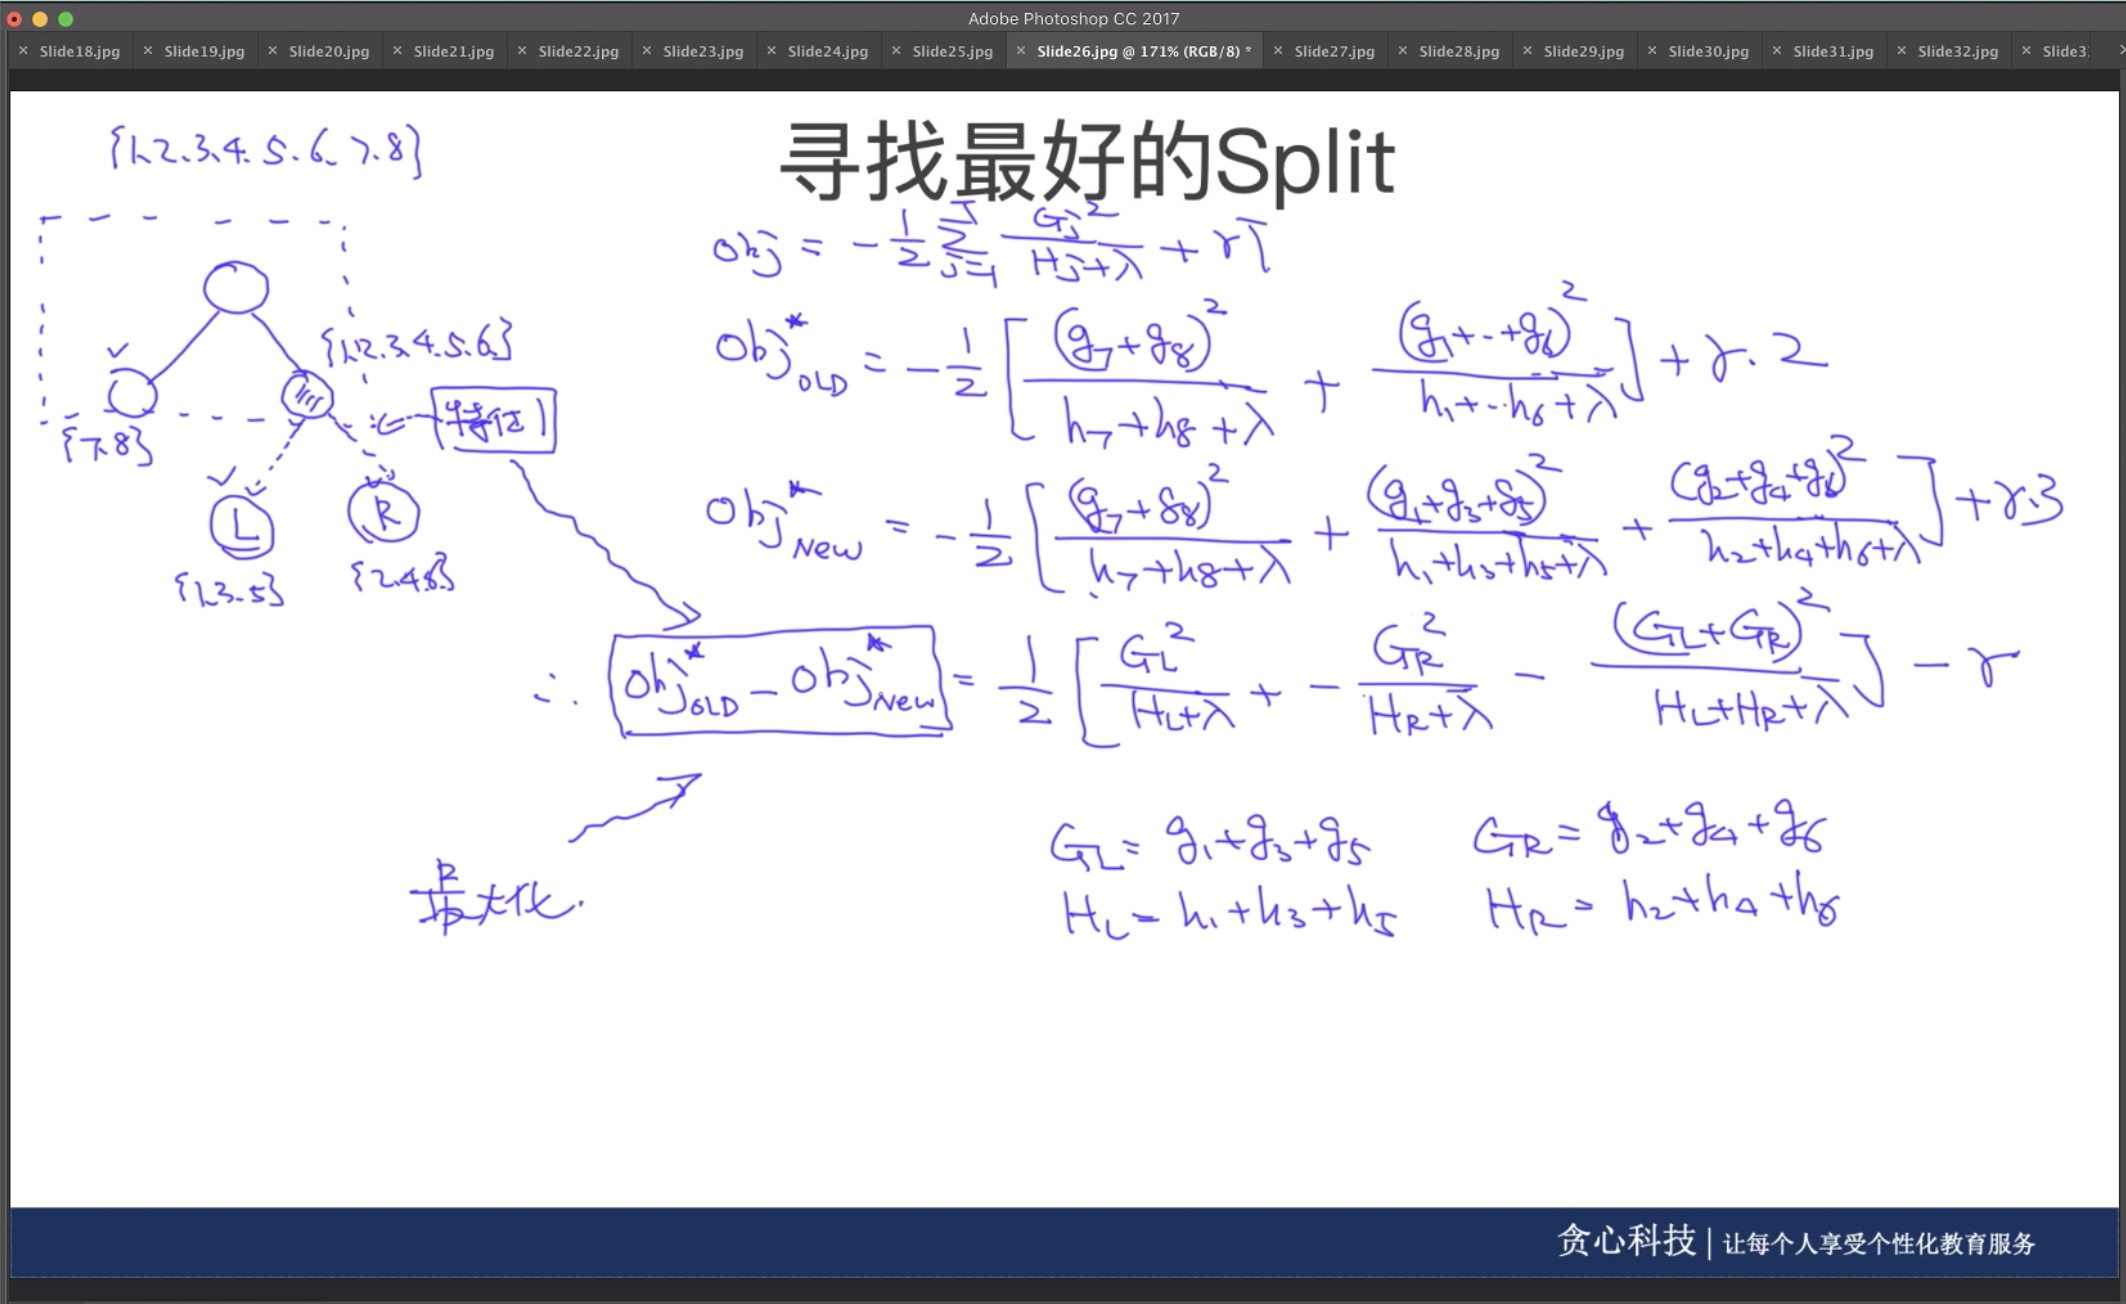 Adobe Photoshop CC 2017
Slide18.jpg Slide19.jpg Slide20.jpg Slide21.jpg Slide22.jpg Slide23.jpg Slide24.jpg Slide25.jpg Slide26.jpg @ 171% (RGB/8) * Slide27.jpg Slide28.jpg Slide29.jpg Slide30.jpg Slide31.jpg Slide32.jpg Slide3
寻找最好的Split
{1.2.3.4.5.6.7.8}
obj = -1/2 Σ_{j=1}^{T} G_j^2/(H_j+λ) + γT
{1.2.3.4.5.6}
{7.8}
特征1
L
R
{1.3.5}
{2.4.6}
Obj*_OLD = -1/2 [ (g_7+g_8)^2/(h_7+h_8+λ) + (g_1+..+g_6)^2/(h_1+..h_6+λ) ] + γ.2
Obj*_New = -1/2 [ (g_7+g_8)^2/(h_7+h_8+λ) + (g_1+g_3+g_5)^2/(h_1+h_3+h_5+λ) + (g_2+g_4+g_6)^2/(h_2+h_4+h_6+λ) ] + γ.3
∴ Obj*_OLD - Obj*_New = 1/2 [ G_L^2/(H_L+λ) + - G_R^2/(H_R+λ) - (G_L+G_R)^2/(H_L+H_R+λ) ] - γ
最大化.
G_L = g_1+g_3+g_5 G_R = g_2+g_4+g_6
H_L = h_1+h_3+h_5 H_R = h_2+h_4+h_6
贪心科技 | 让每个人享受个性化教育服务